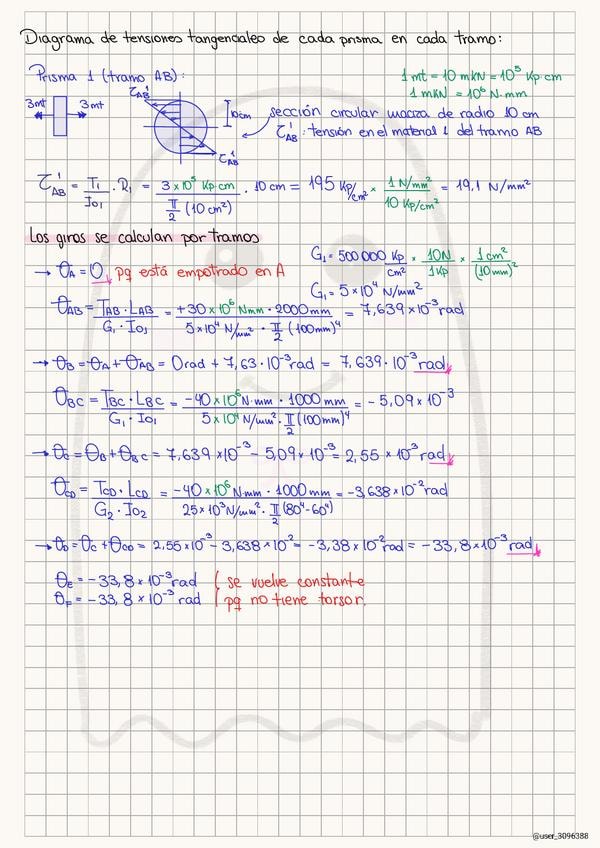 Diagrama de tensiones tangenciales de cada prisma en cada tramo:
Prisma 1 (tramo AB):
1 mt = 10 mkN = 10⁵ Kp·cm
1 mKN = 10⁶ N·mm
3mt 3mt
τ¹AB
10cm
sección circular maciza de radio 10 cm
τ¹AB: tensión en el material 1 del tramo AB
τ¹AB
τ¹AB = T₁/Io₁ · R₁ = 3×10⁵ Kp·cm / π/2 (10 cm²) · 10 cm = 195 Kp/cm² × 1 N/mm² / 10 Kp/cm² = 19,1 N/mm²
Los giros se calculan por tramos
G₁ = 500 000 Kp/cm² × 10N/1Kp × 1 cm²/(10mm)²
→ θA = 0, pq está empotrado en A
G₁ = 5×10⁴ N/mm²
θAB = TAB · LAB / G₁ · Io₁ = +30×10⁶ Nmm · 2000mm / 5×10⁴ N/mm² · π/2 (100mm)⁴ = 7,639×10⁻³ rad
→ θB = θA + θAB = 0rad + 7,63·10⁻³ rad = 7,639·10⁻³ rad
θBC = TBC · LBC / G₁ · Io₁ = −40×10⁶ N·mm · 1000 mm / 5×10⁴ N/mm² · π/2 (100mm)⁴ = −5,09×10⁻³
→ θC = θB + θBC = 7,639×10⁻³ − 5,09×10⁻³ = 2,55×10⁻³ rad
θCD = TCD · LCD / G₂ · Io₂ = −40×10⁶ N·mm · 1000mm / 25×10³ N/mm² · π/2 (80⁴−60⁴) = −3,638×10⁻² rad
→ θD = θC + θCD = 2,55×10⁻³ − 3,638×10⁻² = −3,38×10⁻² rad = −33,8×10⁻³ rad
θE = −33,8×10⁻³ rad { se vuelve constante
θF = −33,8×10⁻³ rad { pq no tiene torsor.
@user_3096388